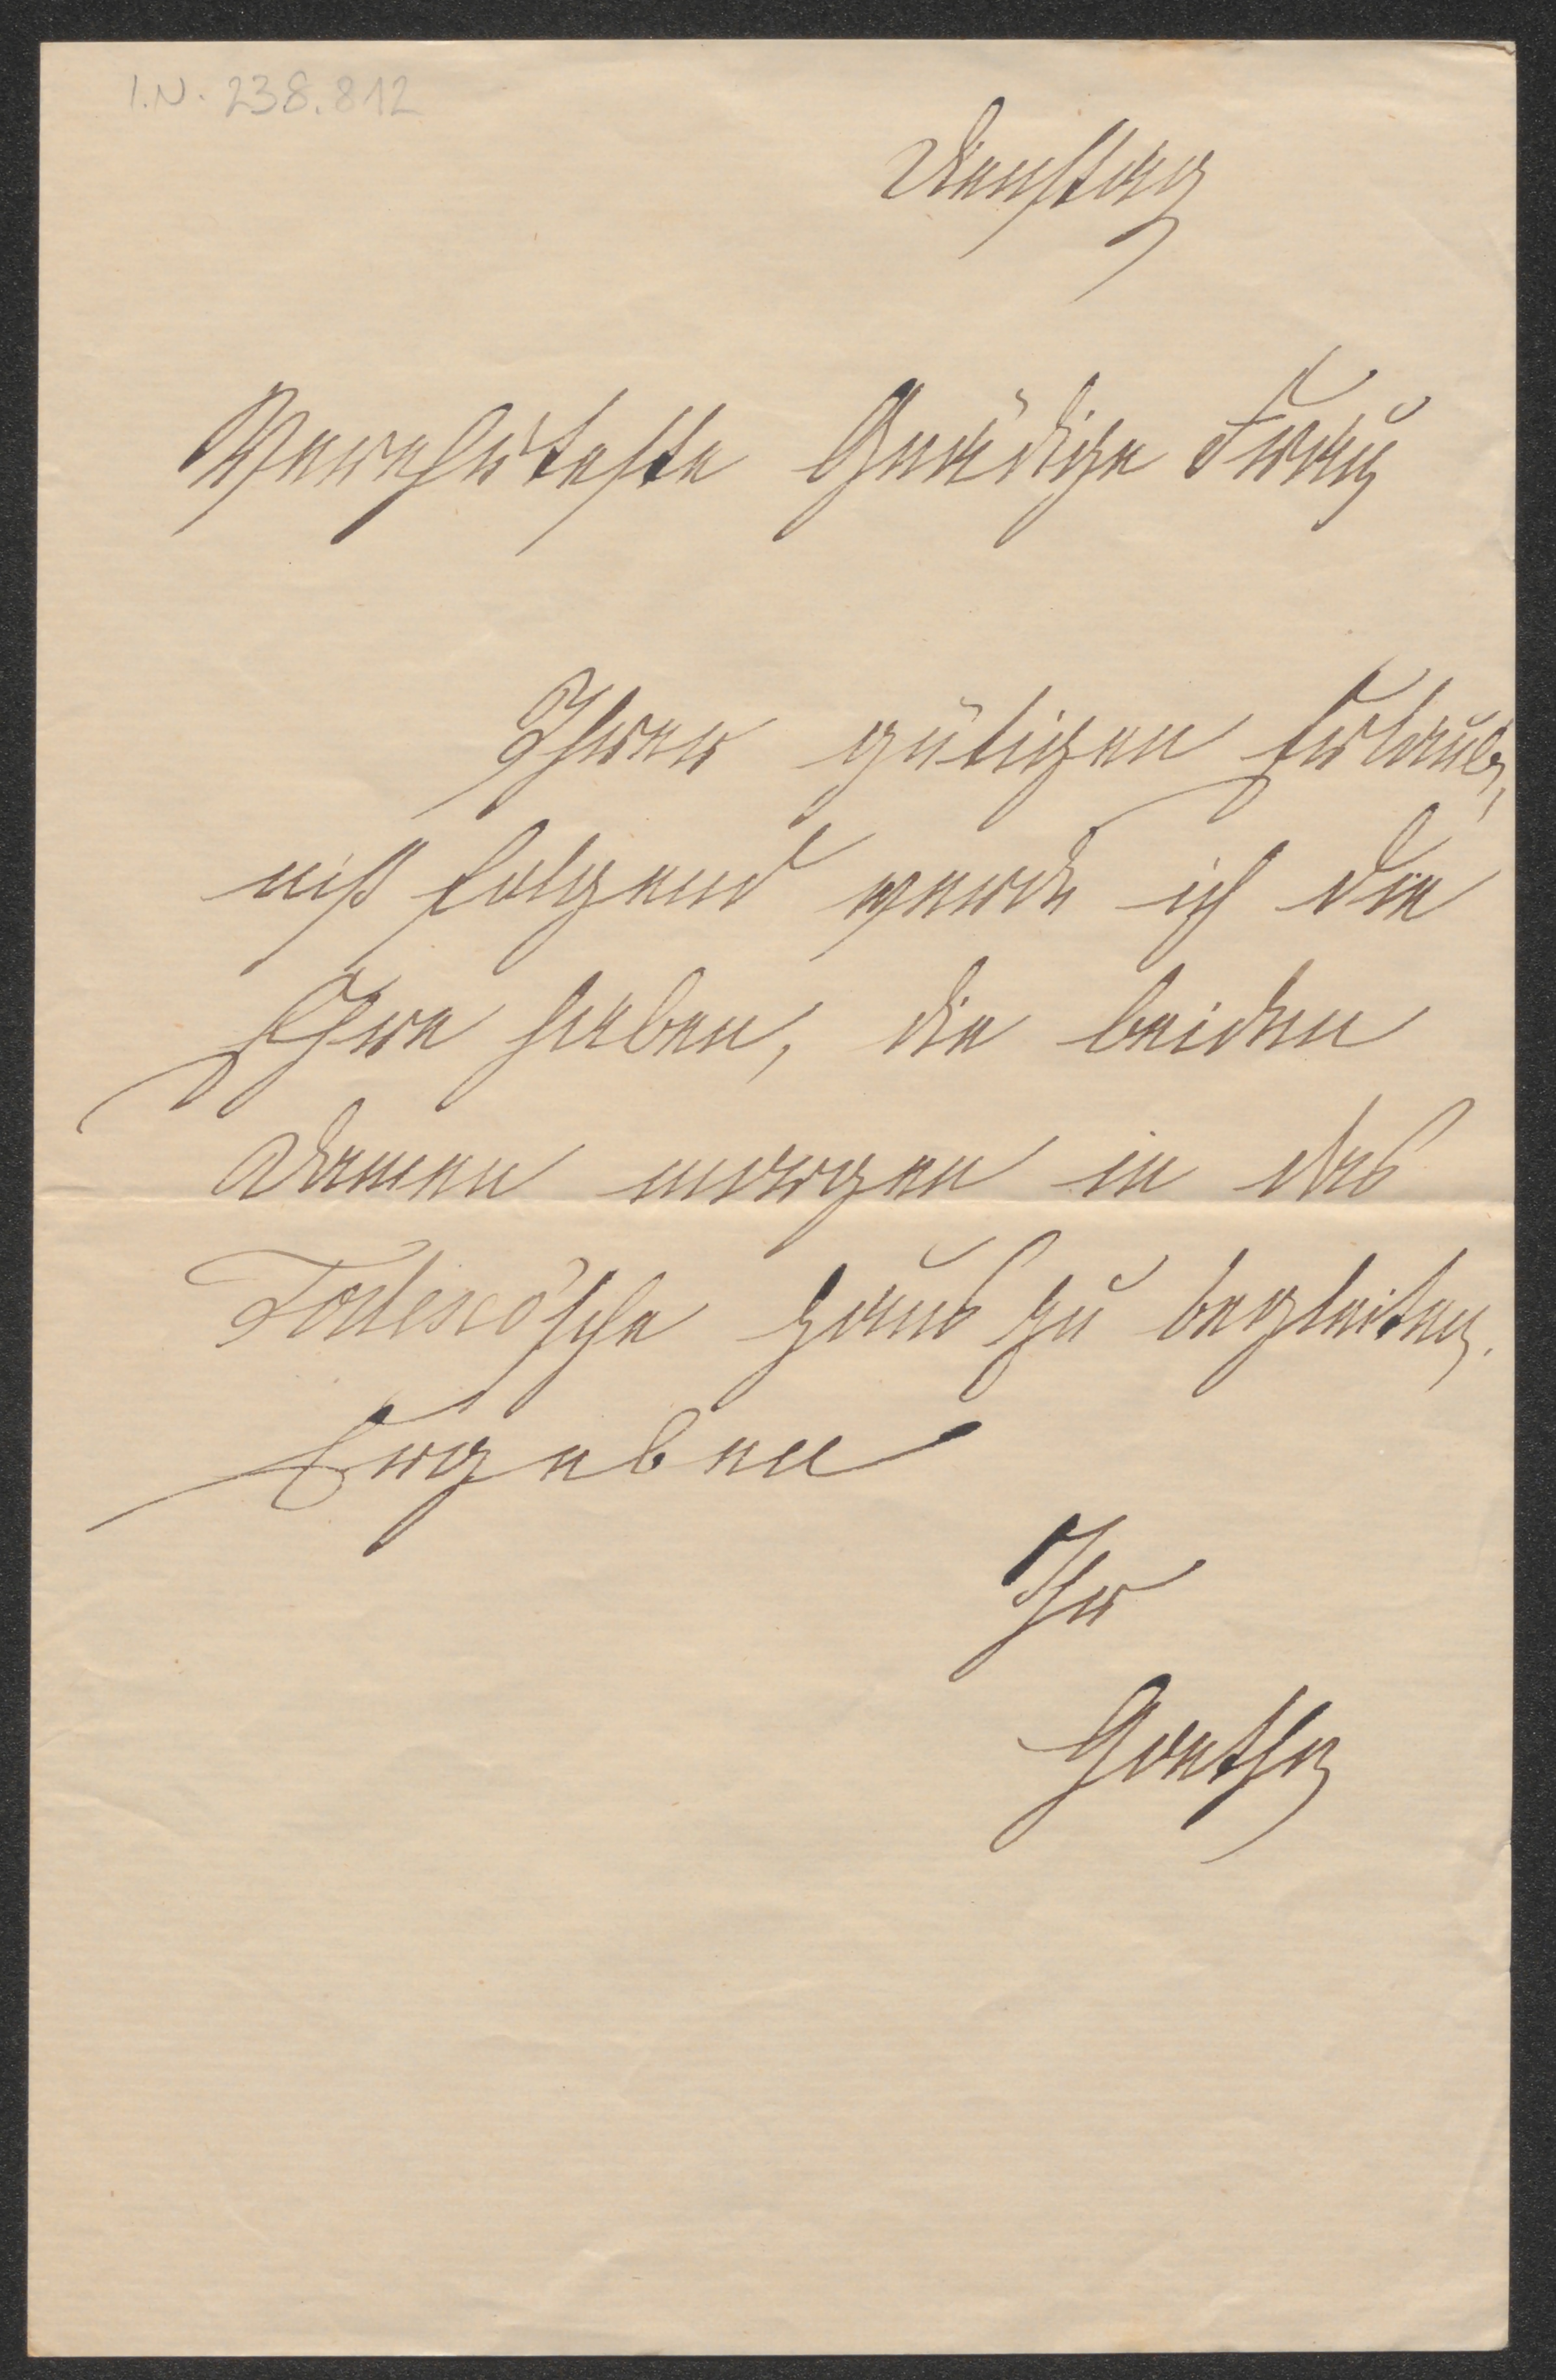 I.N. 238.812
Dienstag
Verehrteste Gnädige Frau
Ihrer gütigen Erlaub-
niß folgend werde ich die
Ehre haben, die beiden
Damen morgen in das
Todesco'sche Haus zu begleiten.
Ergeben
Ihr
Goethe